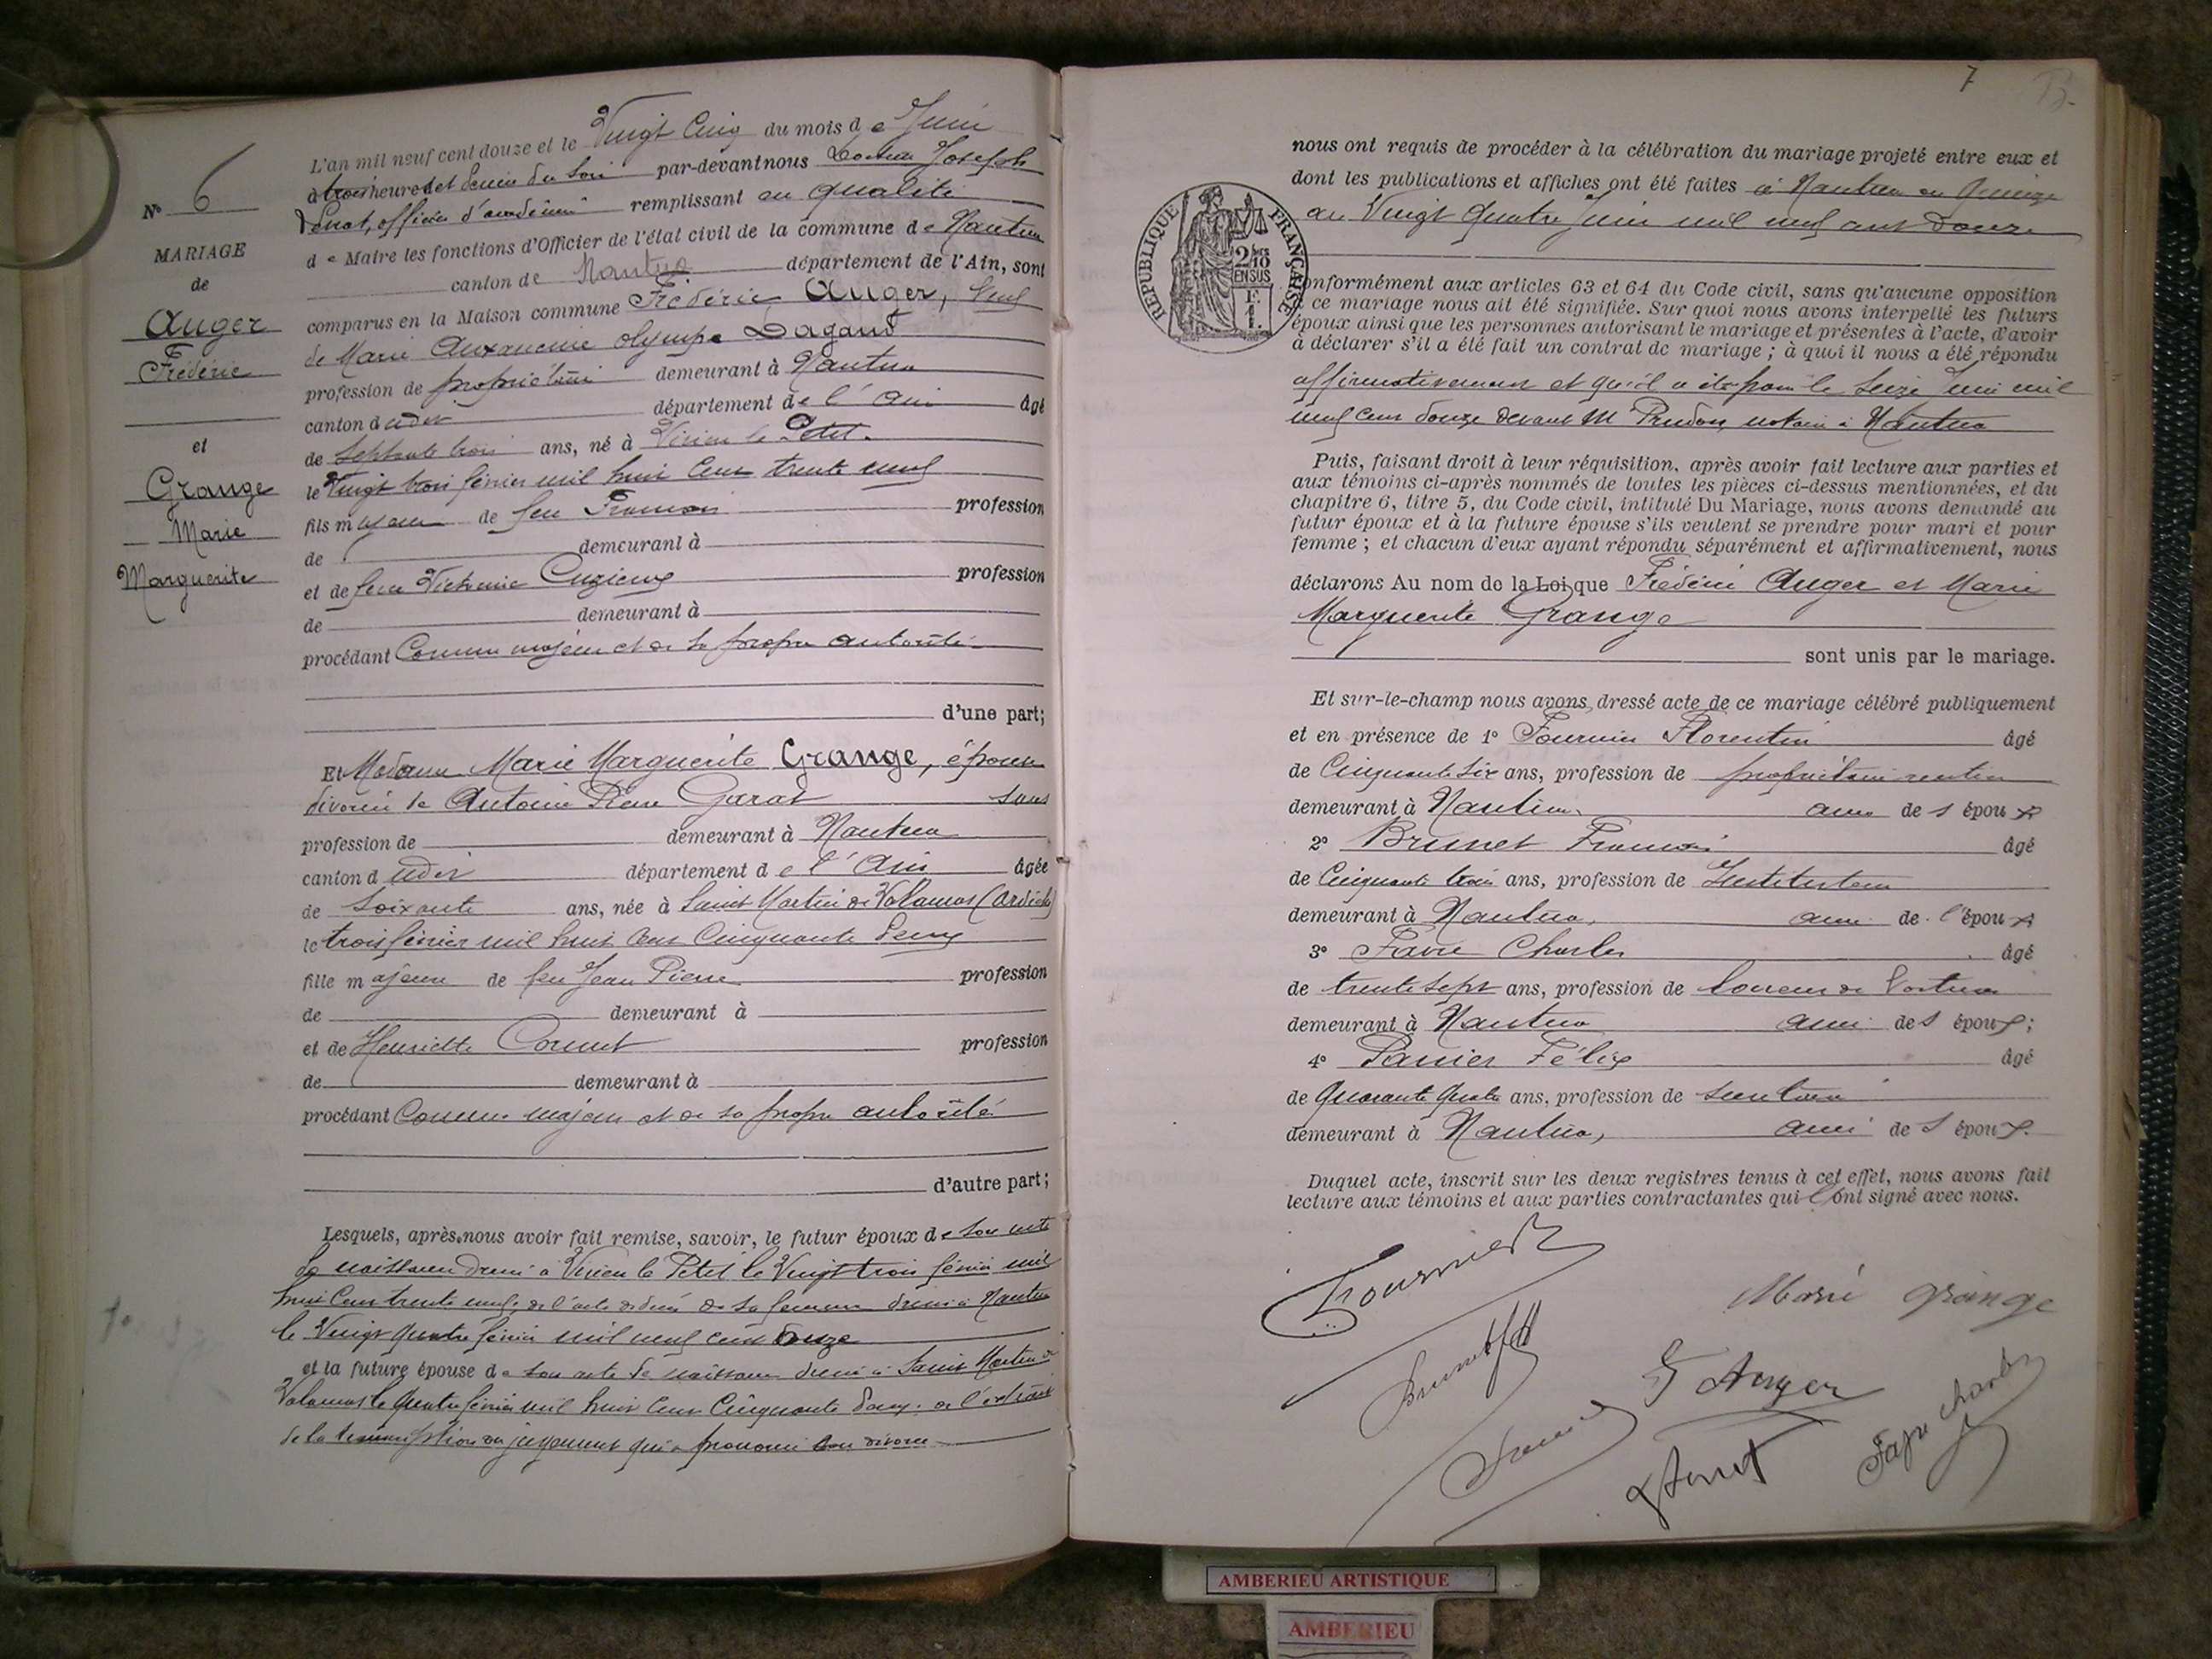 N° 6
MARIAGE
de
Auger
Frédéric
et
Grange
Marie
Marguerite
L'an mil neuf cent douze et le Vingt Cinq du mois de Juin
à trois heures et demie du soir par-devant nous Docteur Joseph
officier d'académie remplissant en qualité
de Maire les fonctions d'Officier de l'état civil de la commune de Nantua
canton de Nantua département de l'Ain, sont
comparus en la Maison commune Frédéric Auger, Veuf
de Marie Olympe Dagand
profession de propriétaire demeurant à Nantua
canton dudit département de l'Ain âgé
de Septante trois ans, né à Virieu le Petit.
le Vingt trois février mil huit Cent trente neuf
fils majeur de feu François profession
de demeurant à
et de feue Victorine Cuzieux profession
de demeurant à
procédant Comme majeur et de sa propre autorité
d'une part;
Et Madame Marie Marguerite Grange, épouse
divorcée de Antoine Pierre Garat sans
profession de demeurant à Nantua
canton dudit département de l'Ain âgée
de Soixante ans, née à Saint Martin de Valamas (Ardèche)
le trois février mil huit Cent Cinquante Deux
fille majeure de feu Jean Pierre profession
de demeurant à
et de Henriette Cornut profession
de demeurant à
procédant Comme majeure et de sa propre autorité
d'autre part;
Lesquels, après nous avoir fait remise, savoir, le futur époux de son acte
de naissance dressé à Virieu le Petit le Vingt trois février mil
huit Cent trente neuf, de l'acte de décès de sa femme dressé à Nantua
le Vingt quatre février mil neuf cent douze
et la future épouse de son acte de naissance dressé à Saint Martin de
Valamas le Quatre février mil huit Cent Cinquante Deux. de l'extrait
de la transcription du jugement qui a prononcé son divorce
7
nous ont requis de procéder à la célébration du mariage projeté entre eux et
dont les publications et affiches ont été faites à Nantua du Quinze
au Vingt Quatre Juin mil neuf cent Douze
REPUBLIQUE FRANÇAISE
2/10
EN SUS
F.
1.
conformément aux articles 63 et 64 du Code civil, sans qu'aucune opposition
à ce mariage nous ait été signifiée. Sur quoi nous avons interpellé les futurs
époux ainsi que les personnes autorisant le mariage et présentes à l'acte, d'avoir
à déclarer s'il a été fait un contrat de mariage ; à quoi il nous a été répondu
affirmativement et qu'il a été passé le Seize Juin mil
neuf cent douze devant M Prudon notaire à Nantua
Puis, faisant droit à leur réquisition, après avoir fait lecture aux parties et
aux témoins ci-après nommés de toutes les pièces ci-dessus mentionnées, et du
chapitre 6, titre 5, du Code civil, intitulé Du Mariage, nous avons demandé au
futur époux et à la future épouse s'ils veulent se prendre pour mari et pour
femme ; et chacun d'eux ayant répondu séparément et affirmativement, nous
déclarons Au nom de la Loi que Frédéric Auger et Marie
Marguerite Grange
sont unis par le mariage.
Et sur-le-champ nous avons dressé acte de ce mariage célébré publiquement
et en présence de 1° Fournier Florentin âgé
de Cinquante six ans, profession de propriétaire rentier
demeurant à Nantua ami des époux
2° Brunet François âgé
de Cinquante trois ans, profession de Instituteur
demeurant à Nantua, ami de l'époux
3° Favre Charles âgé
de trente sept ans, profession de loueur de Voitures
demeurant à Nantua ami des époux;
4° Panier Félix âgé
de Quarante Quatre ans, profession de
demeurant à Nantua, ami des époux.
Duquel acte, inscrit sur les deux registres tenus à cet effet, nous avons fait
lecture aux témoins et aux parties contractantes qui l'ont signé avec nous.
Fournier
Marie Grange
Brunet
F Auger
Favre Charles